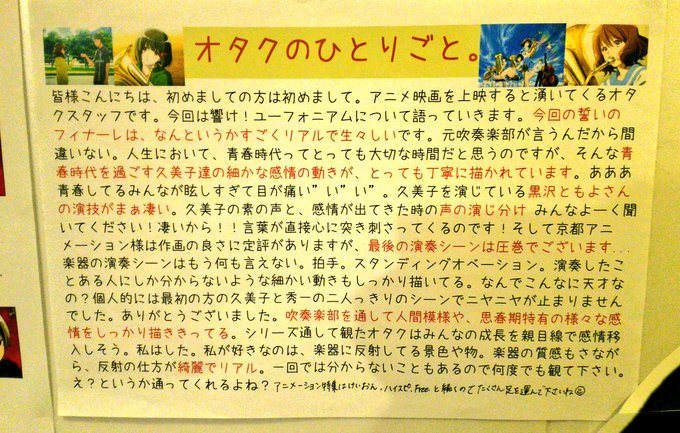 オタクのひとりごと。
皆様こんにちは、初めましての方は初めまして。アニメ映画を上映すると湧いてくるオタ
クスタッフです。今回は響け！ユーフォニアムについて語っていきます。今回の誓いの
フィナーレは、なんというかすごくリアルで生々しいです。元吹奏楽部が言うんだから間
違いない。人生において、青春時代ってとっても大切な時間だと思うのですが、そんな青
春時代を過ごす久美子達の細かな感情の動きが、とっても丁寧に描かれています。あああ
青春してるみんなが眩しすぎて目が痛い”い”い”。久美子を演じている黒沢ともよさん
の演技がまぁ凄い。久美子の素の声と、感情が出てきた時の声の演じ分け みんなよーく聞
いてください！凄いから！！言葉が直接心に突き刺さってくるのです！そして京都アニ
メーション様は作画の良さに定評がありますが、最後の演奏シーンは圧巻でございます...
楽器の演奏シーンはもう何も言えない。拍手。スタンディングオベーション。演奏したこ
とある人にしか分からないような細かい動きもしっかり描いてる。なんでこんなに天才な
の？個人的には最初の方の久美子と秀一の二人っきりのシーンでニヤニヤが止まりません
でした。ありがとうございました。吹奏楽部を通して人間模様や、思春期特有の様々な感
情をしっかり描ききってる。シリーズ通して観たオタクはみんなの成長を親目線で感情移
入しそう。私はした。私が好きなのは、楽器に反射してる景色や物。楽器の質感もさなが
ら、反射の仕方が綺麗でリアル。一回では分からないこともあるので何度でも観て下さい。
え？というか通ってくれるよね？アニメーション特集はけいおん、ハイスピ、Freeと続くのでたくさん足を運んで下さいね